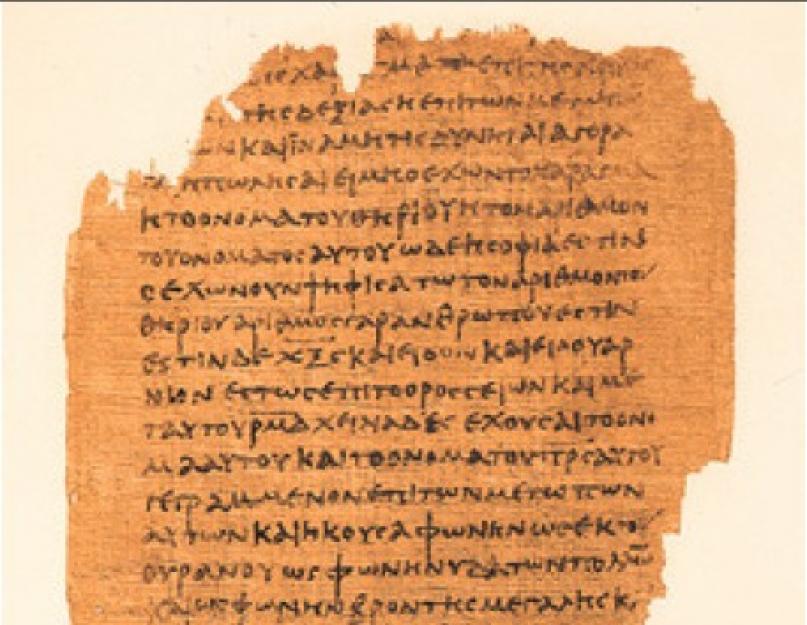 ΤΗϹΔΕΞΙΑϹΗΕΠΙΤΩΝΜΕΤΩΠ
ΩΝΚΑΙΪΝΑΜΗΤΙϹΔΥΝΗΤΑΙΑΓΟΡΑ
ΗΠΩΛΗϹΑΙΕΙΜΗΟΕΧΩΝΤΟΧΑΡΑΓΜΑ
ΗΤΟΟΝΟΜΑΤΟΥΘΗΡΙΟΥΗΤΟΝΑΡΙΘΜΟΝ
ΤΟΥΟΝΟΜΑΤΟϹΑΥΤΟΥΩΔΕΗϹΟΦΙΑΕϹΤΙΝ
ΟΕΧΩΝΟΥΝΨΗΦΙϹΑΤΩΤΟΝΑΡΙΘΜΟΝΤΟΥ
ΘΗΡΙΟΥΑΡΙΘΜΟϹΓΑΡΑΝΘΡΩΠΟΥΕϹΤΙΝ
ΕϹΤΙΝΔΕΧΞϚΚΑΙΕΙΔΟΝΚΑΙΕΙΔΟΥΑΡ
ΝΙΟΝΕϹΤΩϹΕΠΙΤΟΟΡΟϹϹΕΙΩΝΚΑΙΜΕ
ΤΑΥΤΟΥΡΜΔΧΕΙΛΙΑΔΕϹΕΧΟΥϹΑΙΤΟΟΝΟ
ΜΑΑΥΤΟΥΚΑΙΤΟΟΝΟΜΑΤΟΥΠΡϹΑΥΤΟΥ
ΓΕΓΡΑΜΜΕΝΟΝΕΠΙΤΩΝΜΕΤΩΠΩΝ
ΑΥΤΩΝΚΑΙΗΚΟΥϹΑΦΩΝΗΝΩϹΕΚΤΟΥ
ΟΥΡΑΝΟΥΩϹΦΩΝΗΝΥΔΑΤΩΝΠΟΛΛΩ
ΚΑΙΩϹΦΩΝΗΝΒΡΟΝΤΗϹΜΕΓΑΛΗϹΚ